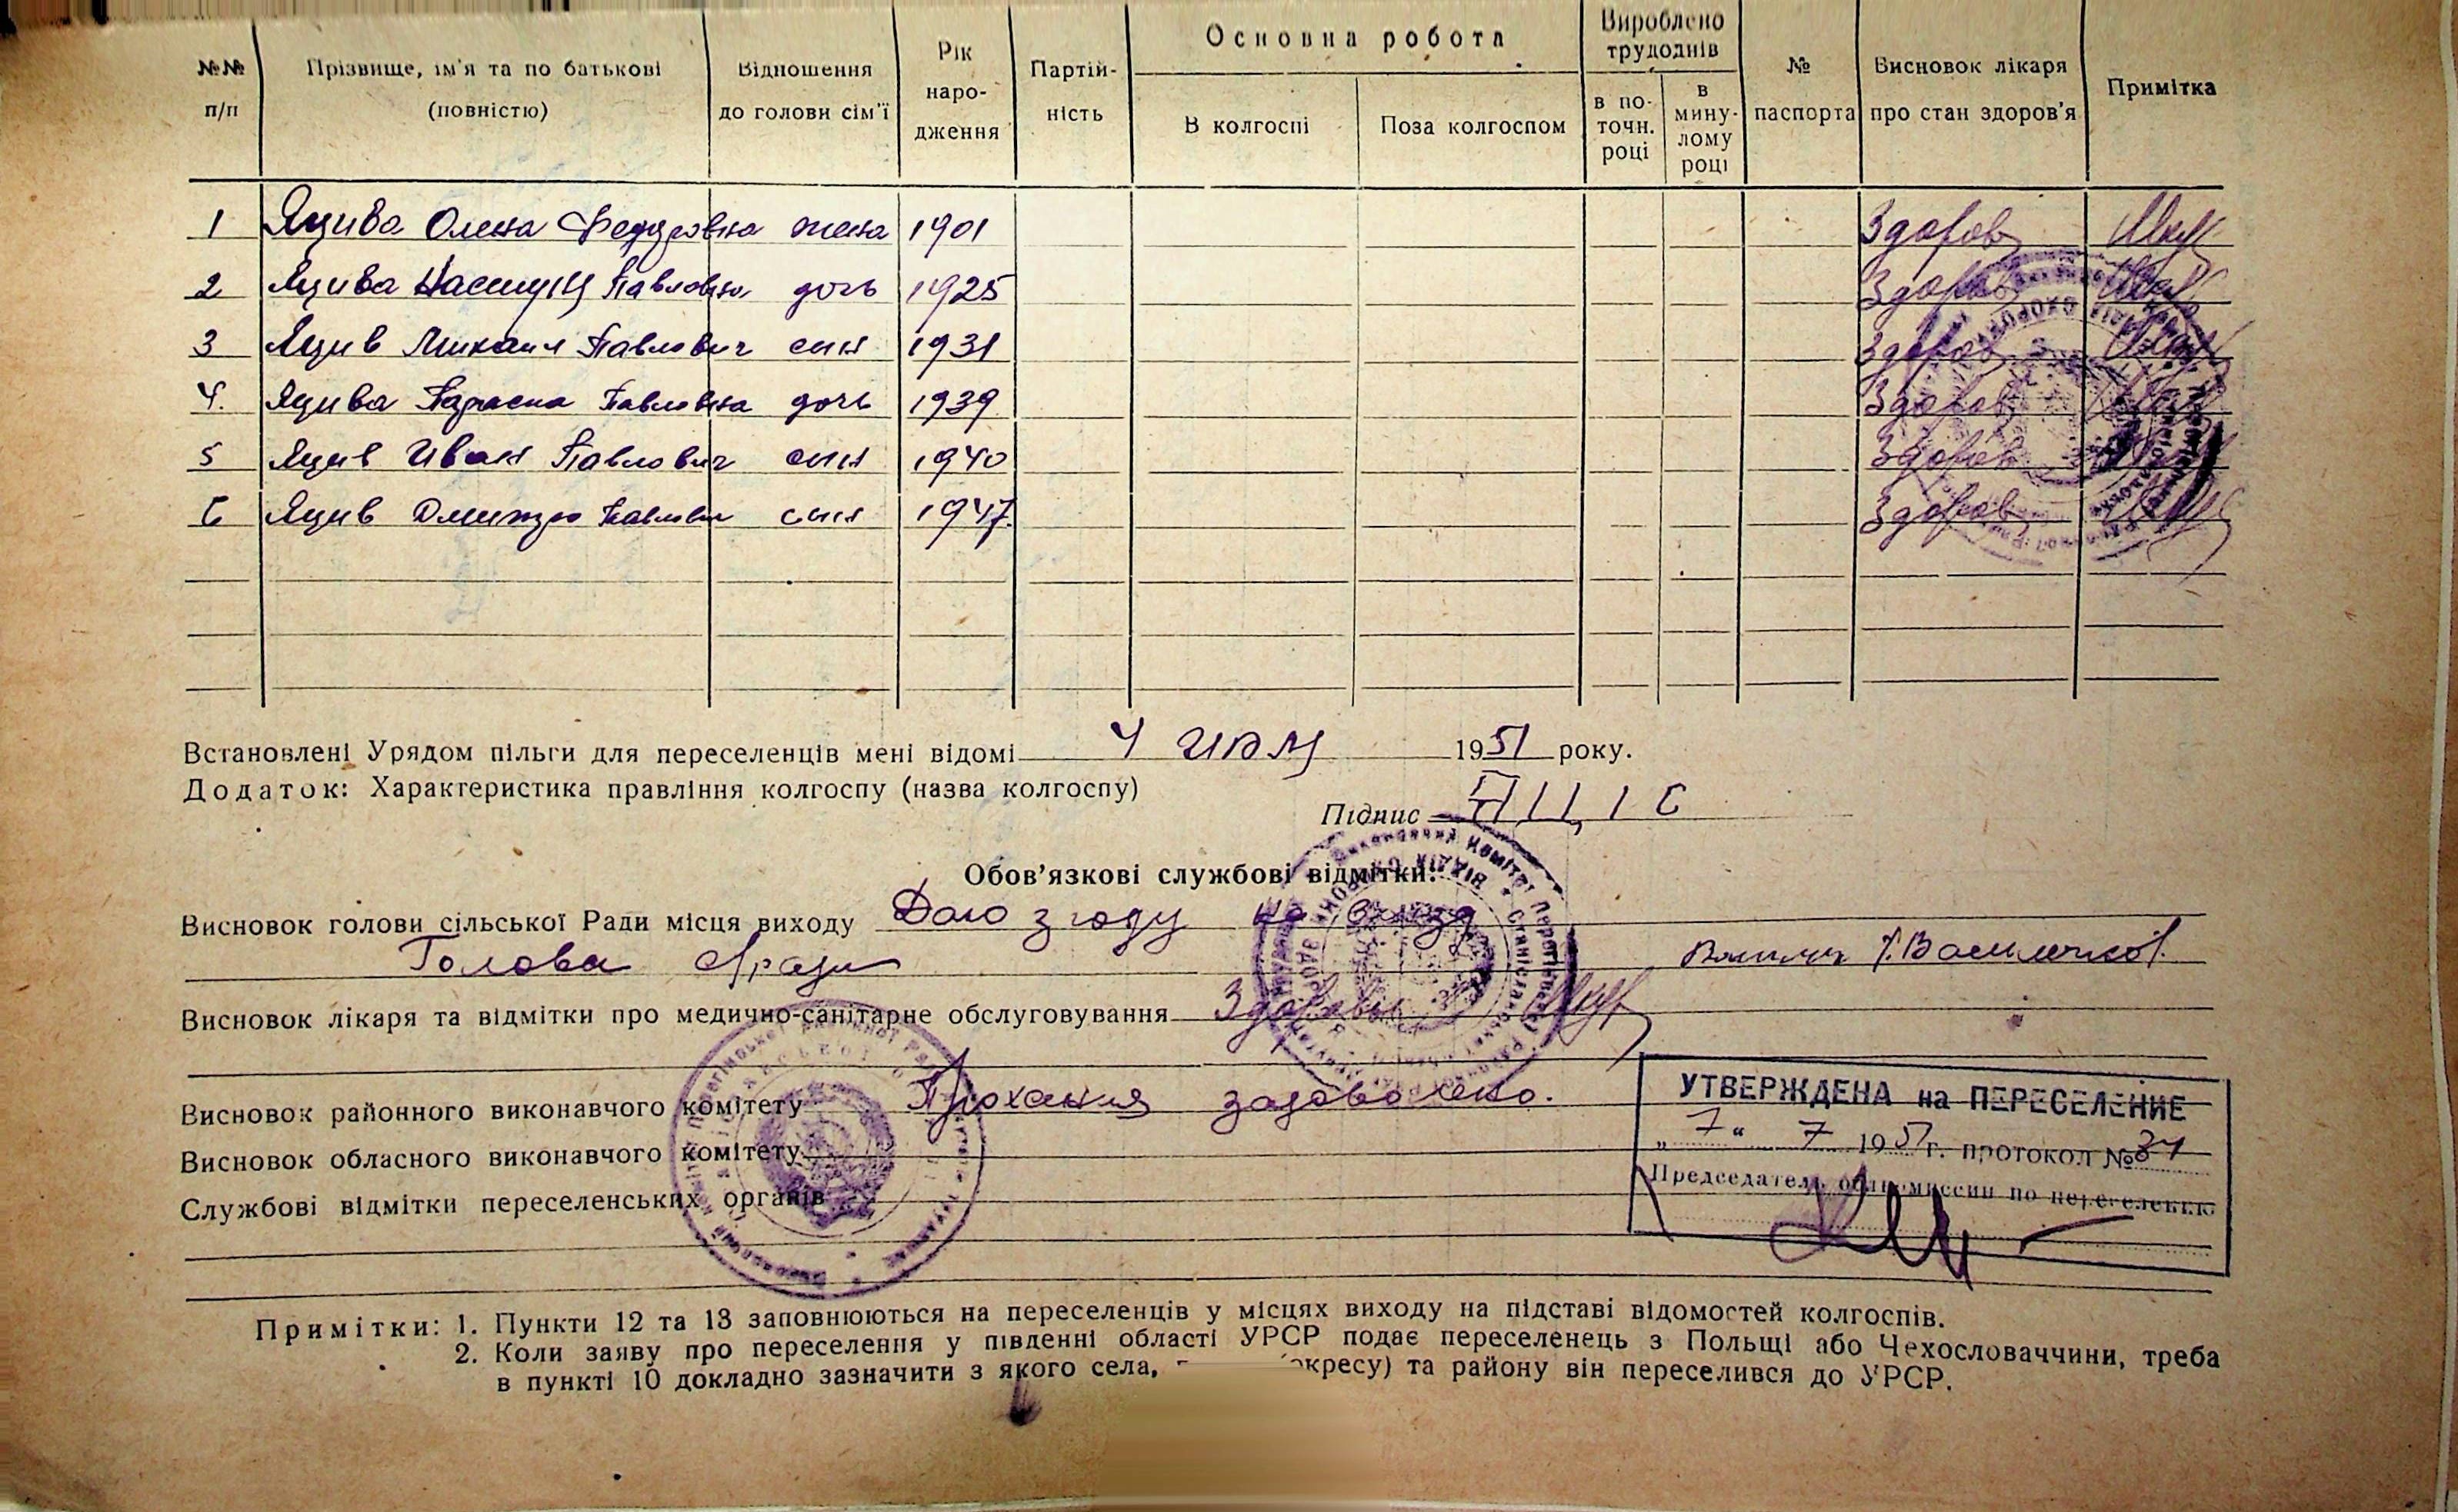 №№ п/п | Прізвище, ім'я та по батькові (повністю) | Відношення до голови сім'ї | Рік народження | Партійність | Основна робота | Вироблено трудоднів | № паспорта | Висновок лікаря про стан здоров'я | Примітка
В колгоспі | Поза колгоспом | в поточн. році | в минулому році
1 Яцива Олена Федоровна жена 1901 Здоров
2 Яцива Павловна дочь 1925 Здоров
3 Яцив Михаил Павлович син 1931 Здоров
4. Яцива Параска Павловна дочь 1939 Здоров
5 Яцив Иван Павлович син 1940 Здоров
6 Яцив Дмитро Павлович син 1947. Здоров
Встановлені Урядом пільги для переселенців мені відомі 4 1951 року.
Додаток: Характеристика правління колгоспу (назва колгоспу)
Підпис
Обов'язкові службові відмітки:
Висновок голови сільської Ради місця виходу Даю згоду на
Голова
Висновок лікаря та відмітки про медично-санітарне обслуговування
Висновок районного виконавчого комітету Прохання задоволено.
Висновок обласного виконавчого комітету
Службові відмітки переселенських органів
УТВЕРЖДЕНА на ПЕРЕСЕЛЕНИЕ
„7“ 7 1951г. протокол №34
Председатель облкомиссии по переселению
Примітки: 1. Пункти 12 та 13 заповнюються на переселенців у місцях виходу на підставі відомостей колгоспів.
2. Коли заяву про переселення у південні області УРСР подає переселенець з Польщі або Чехословаччини, треба
в пункті 10 докладно зазначити з якого села, окресу) та району він переселився до УРСР.